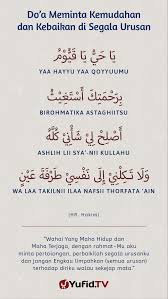 Do'a Meminta Kemudahan
dan Kebaikan di Segala Urusan
يَا حَيُّ يَا قَيُّوْمُ
YAA HAYYU YAA QOYYUUMU
بِرَحْمَتِكَ أَسْتَغِيْثُ
BIROHMATIKA ASTAGHIITSU
أَصْلِحْ لِيْ شَأْنِيْ كُلَّهُ
ASHLIH LII SYA'-NII KULLAHU
وَلَا تَكِلْنِيْ إِلَى نَفْسِيْ طَرْفَةَ عَيْنٍ
WA LAA TAKILNII ILAA NAFSII THORFATA 'AIN
(HR. Hakim)
"Wahai Yang Maha Hidup dan
Maha Terjaga, dengan rahmat-Mu aku
minta pertolongan, perbaikilah segala urusanku
dan jangan Engkau limpahkan (semua urusan)
terhadap diriku walau sekejap mata."
YUFID.TV